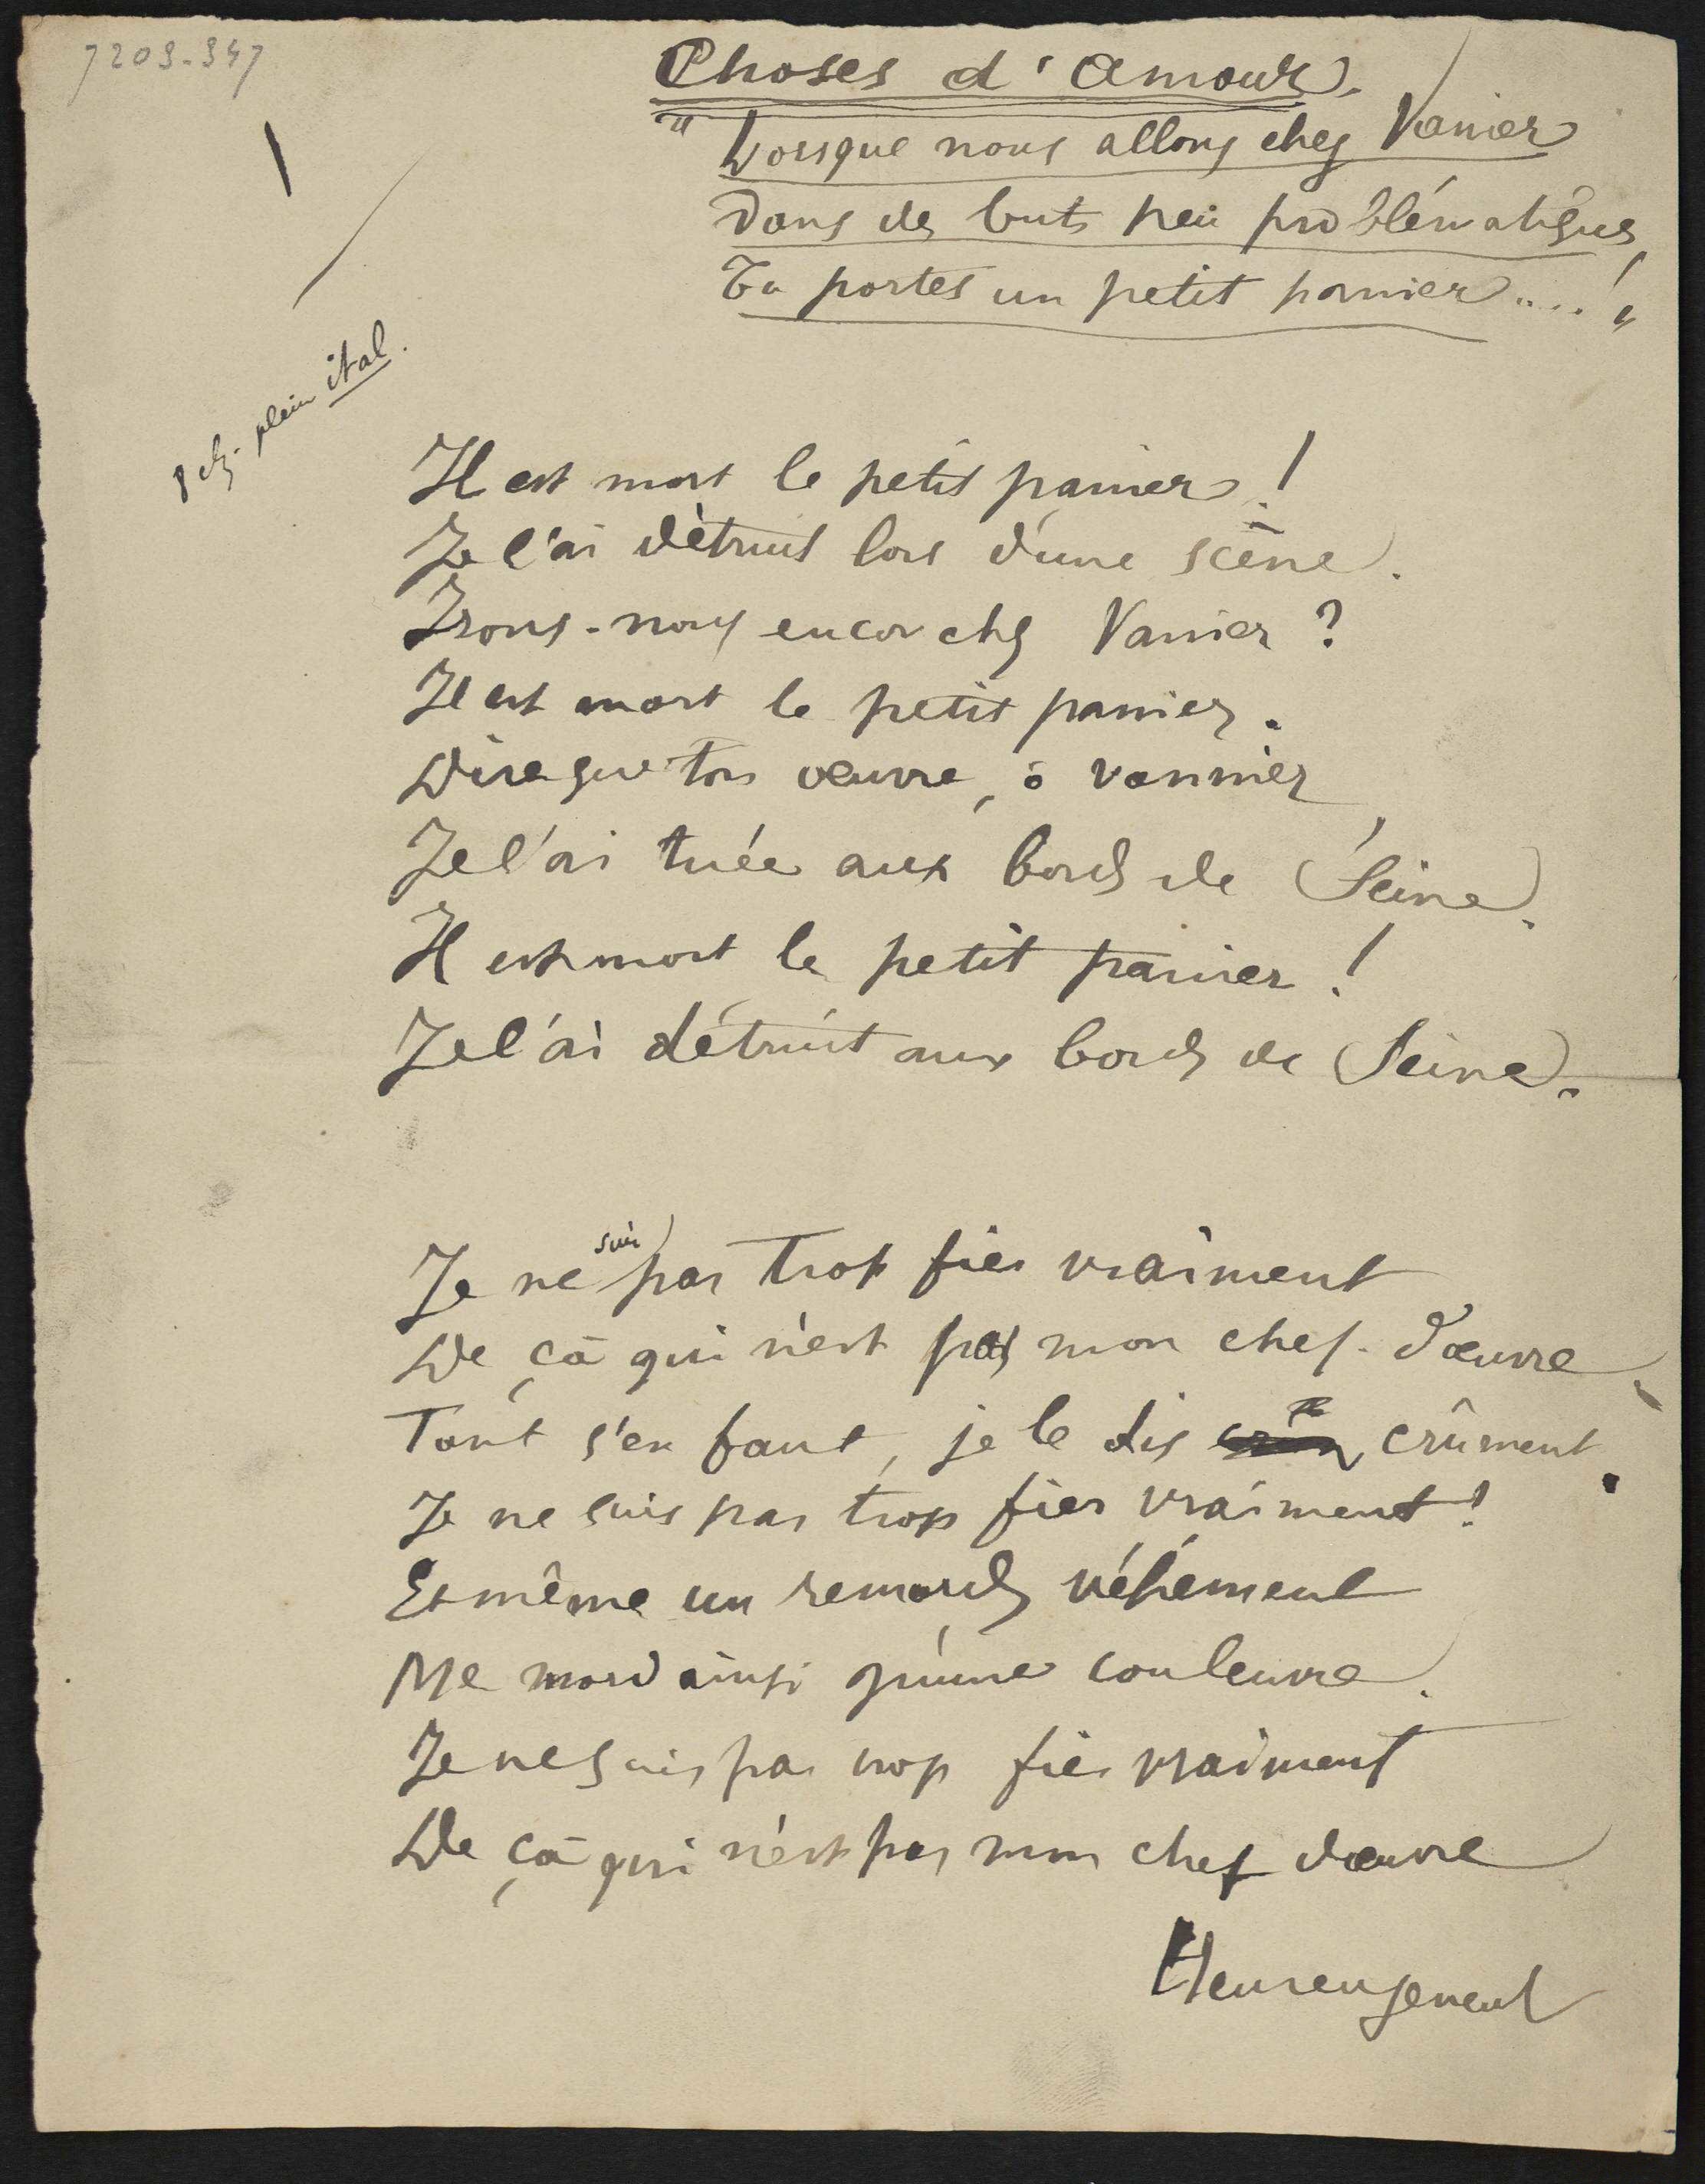 7209-347
Choses d'Amour.
" Lorsque nous allons chez Vanier
Dans des buts peu problématiques,
Tu portes un petit panier....! "
8 plein ital.
Il est mort le petit panier !
Je l'ai détruit lors d'une scène.
Irons-nous encor chez Vanier ?
Il est mort le petit panier.
Dire que ton œuvre, ô vannier,
Je l'ai tuée aux bords de Seine.
Il est mort le petit panier !
Je l'ai détruit aux bords de Seine.
Je ne suis pas trop fier vraiment
De çà qui n'est pas mon chef-d'œuvre,
Tant s'en faut, je le dis crûment.
Je ne suis pas trop fier vraiment !
Et même un remords véhément
Me mord ainsi qu'une couleuvre.
Je ne suis pas trop fier vraiment
De çà qui n'est pas mon chef d'œuvre
Heureusement